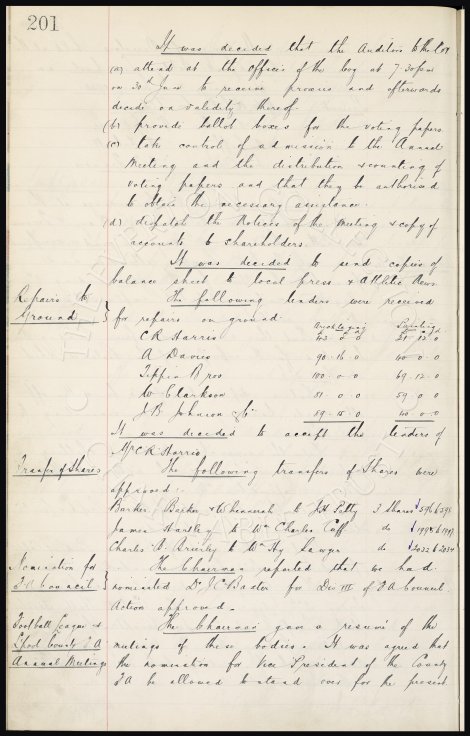 201
It was decided that the Auditors be
(a) attend at the offices of the Coy at 7.30 pm
on 30th June to receive proxies and afterwards
decide on validity thereof.
(b) provide ballot boxes for the voting papers
(c) take control of admission to the Annual
Meeting and the distribution & counting of
voting papers and that they be authorised
to obtain the necessary assistance.
(d) dispatch the Notices of the Meeting & copy of
accounts to shareholders.
It was decided to send copies of
balance sheet to local press & Athletic News
Repairs to
Ground
The following tenders were received
for repairs on ground.
Bricklaying Painting
C R Harris 43 - 0 - 0
A Davies 90 - 16 - 0 40 - 0 - 0
Tippin Bros 100 - 0 - 0 69 - 12 - 0
W Clarkson 51 - 0 - 0 59 - 0 - 0
J B Johnson 59 - 15 - 0 40 - 0 - 0
It was decided to accept the tenders of
Mr C R Harris
Transfer of Shares
The following transfers of Shares were
approved.
Barker, Barker & to J H 3 Shares
James Hartley to Wm Charles Cuff do
Charles to Wm Hy Sawyer do 2032 to 2034
Nomination for
F A Council
The Chairman reported that we had
nominated Dr J C Baxter for Div III of F A Council
Action approved.
Football League &
County F A
Annual Meetings
The Chairman gave a resumé of the
meetings of these bodies. It was agreed that
the nomination for Vice President of the County
F A be allowed to stand over for the present